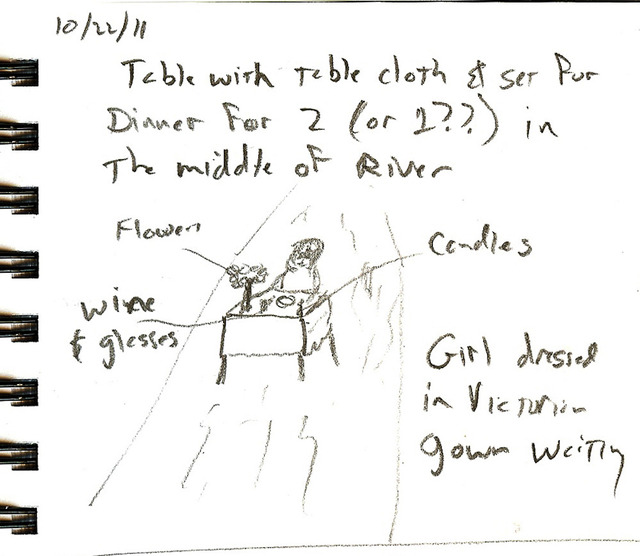 10/22/11
Table with table cloth & set for
Dinner for 2 (or 1??) in
the middle of River
Flowers
Candles
wine
& glasses
Girl dressed
in Victorian
gown waiting